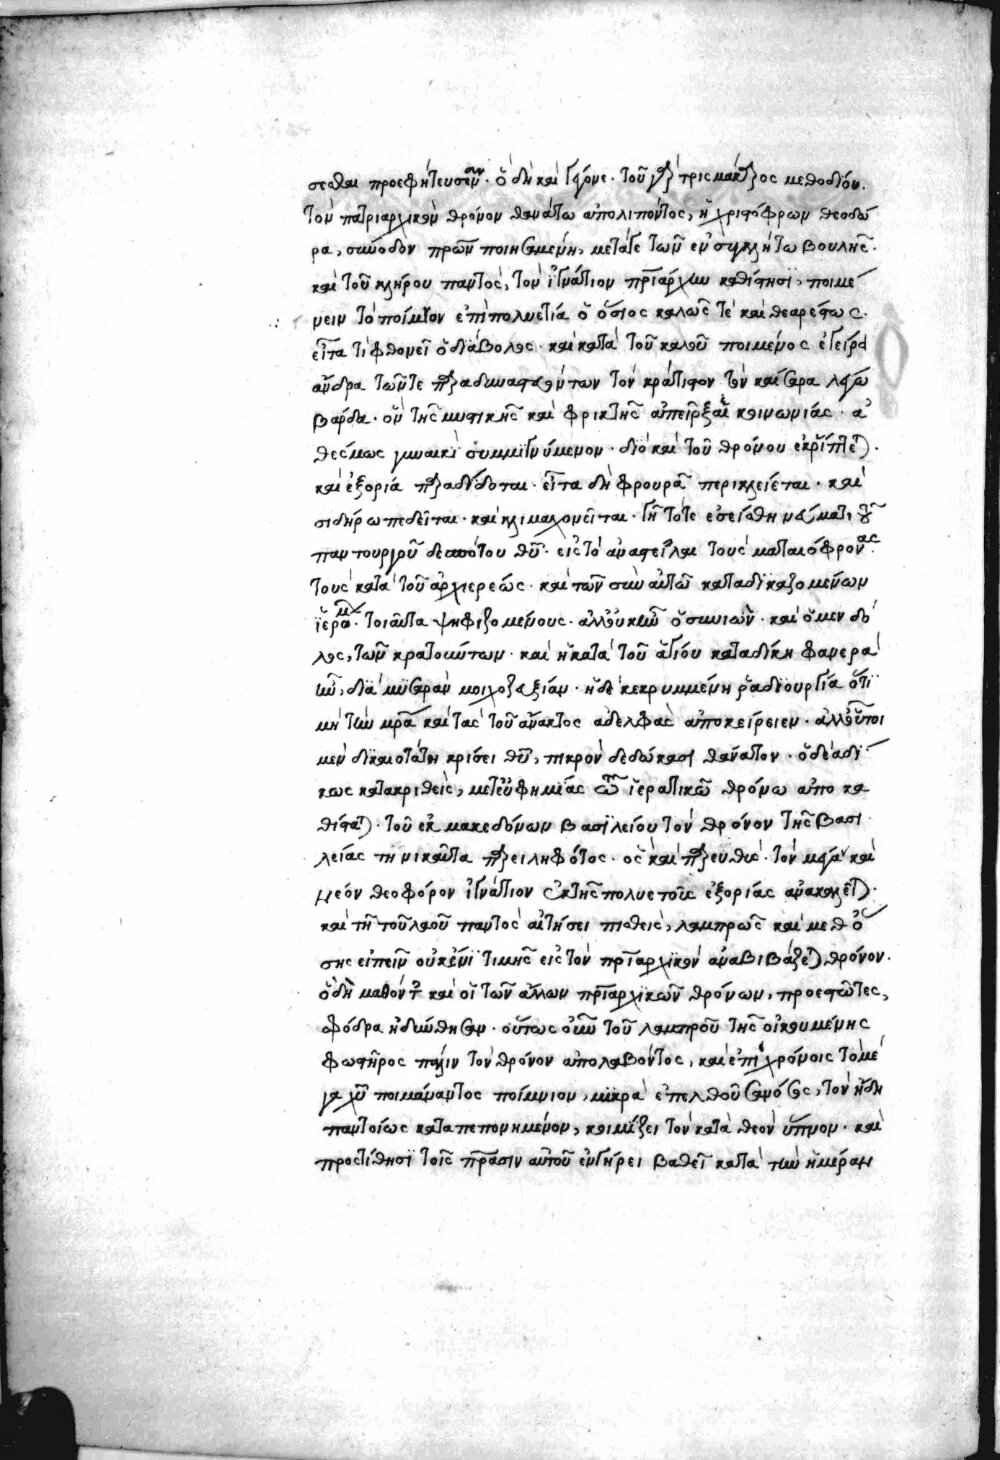 σεσθαι προεφήτευσεν· ὃ δὴ καὶ γέγονε· τοῦ γὰρ τρισμάκαρος μεθοδίου.
τὸν πατριαρχικὸν θρόνον θανάτω ἀπολιπόντος, ἡ χριστόφρων θεοδώ
ρα, σύνοδον πρῶτον ποιησαμένη, μετάγε τῶν ἐν συγκλήτω βουλῆς·
καὶ τοῦ κλήρου παντὸς, τὸν ἰγνάτιον πριάρχην καθίστησι, ποιμέ
νειν τὸ ποίμνιον ἐπὶ πολυετία ὁ ὅσιος καλῶς τε καὶ θεαρέστως.
εἶτα τί φθονεῖ ὁ διάβολος· καὶ κατὰ τοῦ καλοῦ ποιμένος ἐγείρει
ἄνδρα τῶν τε παραδυναστευόντων τὸν κράτιστον τὸν καίσαρα λέγω
βάρδα· ὃν τῆς μυστικῆς καὶ φρικτῆς ἀπεῖρξαι κοινωνίας· ἀ
θέσμως γυναικὶ συμμιγνύμενον· διὸ καὶ τοῦ θρόνου ἐκρίπτεται.
καὶ ἐξορία παραδίδοται· εἶτα δὴ φρουρᾶ περικλείεται· καὶ
σιδήρω πεδεῖται· καὶ λιμαγχονεῖται· γῆ τότε ἐσείσθη νεύματι τοῦ
παντουργοῦ δεσπότου θῦ· εἰς τὸ ἀναστεῖλαι τοὺς ματαιόφρονας
τοὺς κατὰ τοῦ ἀρχιερέως· καὶ τῶν σὺν αὐτῶ καταδικαζομένων
ἱερα τοιαῦτα ψηφιζομένους· ἀλλ' οὐκ ἦν ὁ συνιών· καὶ ὁ μὲν δό
λος, τῶν κρατούντων· καὶ ἡ κατὰ τοῦ ἁγίου καταδίκη φανερὰ
ἦν, διὰ μυσαρὰν μοιχοζευξίαν· ἡ δὲ κεκρυμμένη ῥαδιουργία ὅτι
μὴ τὴν μρα καὶ τὰς τοῦ ἄνακτος ἀδελφὰς ἀποκείρειεν· ἀλλ' οὗτοι
μὲν δικαιοτάτη κρίσει θῦ, πικρὸν δεδώκασι θάνατον· ὁ δὲ ἀδί
κως κατακριθεὶς, μετ' εὐφημίας τῶ ἱερατικῶ θρόνω ἀποκα
θίσταται· τοῦ ἐκ μακεδόνων βασιλείου τὸν θρόνον τῆς βασι
λείας τηνικαῦτα παρειληφότος· ὃς καὶ παρευθὺς τὸν μέγαν καὶ
νέον θεοφόρον ἰγνάτιον ἐκ τῆς πολυετοῦς ἐξορίας ἀνακαλεῖται·
καὶ τῆ τοῦ λαοῦ παντὸς αἰτήσει πισθεὶς, λαμπρῶς καὶ μεθ' ὅ
σης εἰπεῖν οὐκ ἔνι τιμῆς εἰς τὸν πριαρχικὸν ἀναβιβάζεται θρόνον.
ὃ δὴ μαθόντες καὶ οἱ τῶν ἄλλων πριαρχικῶν θρόνων, προεστῶτες,
σφόδρα ἡδύνθησαν· οὕτως οὖν τοῦ λαμπροῦ τῆς οἰκουμένης
φωστῆρος πάλιν τὸν θρόνον ἀπολαβόντος, καὶ ἐπὶ χρόνοις τὸ μέ
γα χῦ ποιμάναντος ποίμνιον, μικρὰ ἐπελθοῦσα νόσος, τὸν ἤδη
παντοίως καταπεπονημένον, κοιμίζει τὸν κατὰ θεὸν ὕπνον· καὶ
προστίθησι τοῖς πράσιν αὐτοῦ ἐν γήρει βαθεῖ κατὰ τὴν ἡμέραν